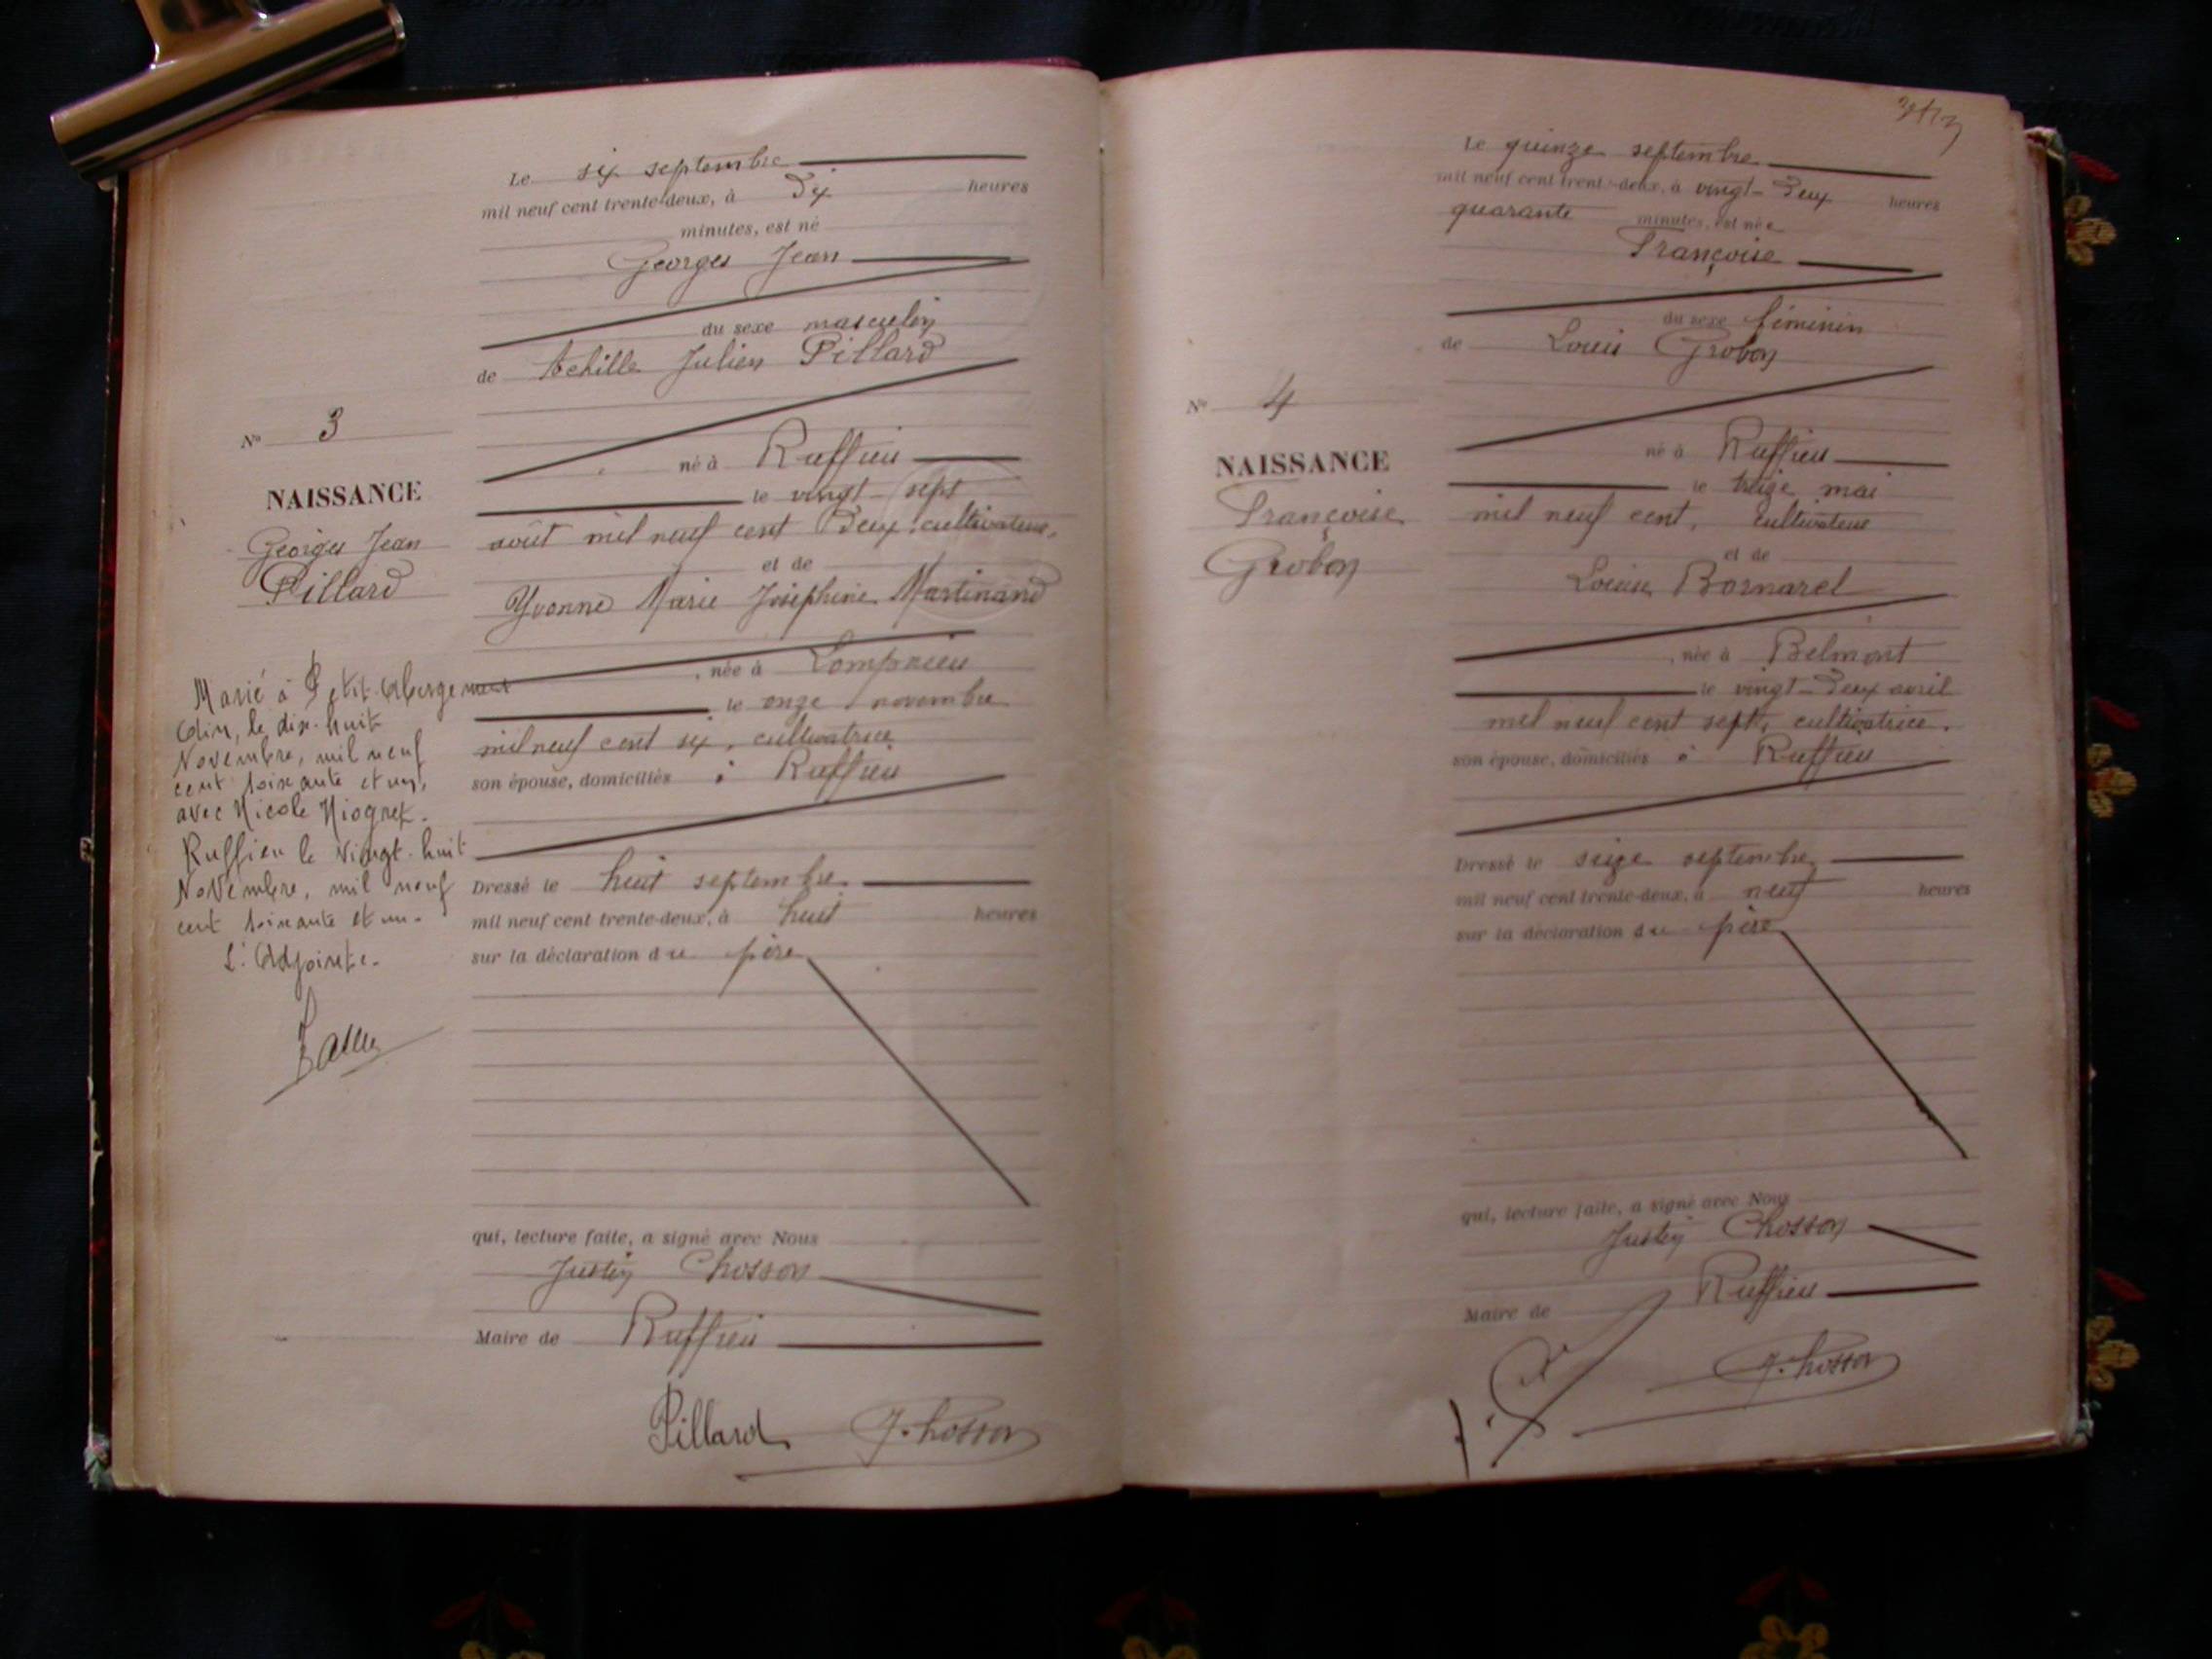 Le six septembre
mil neuf cent trente-deux, à dix heures
minutes, est né
Georges Jean
du sexe masculin
de Achille Julien Pillard
né à Ruffieu
le vingt-sept
août mil neuf cent deux, cultivateur,
et de
Yvonne Marie Joséphine Martinand
, née à Lompnieu
le onze novembre
mil neuf cent six, cultivatrice
son épouse, domiciliés à Ruffieu
Dressé le huit septembre
mil neuf cent trente-deux, à huit heures
sur la déclaration du père
qui, lecture faite, a signé avec Nous
Justin Chosson
Maire de Ruffieu
Pillard J. Chosson
N° 3
NAISSANCE
Georges Jean
Pillard
Marié à Petit-Abergement
(Ain, le dix-huit
Novembre, mil neuf
cent soixante et un,
avec Nicole
Ruffieu le Vingt-huit
Novembre, mil neuf
cent soixante et un.
L'Adjointe.
Le quinze septembre
mil neuf cent trente-deux, à vingt-deux heures
quarante minutes, est née
Françoise
du sexe féminin
de Louis Grobon
né à Ruffieu
le treize mai
mil neuf cent, cultivateur
et de
Louise Bornarel
, née à Belmont
le vingt-deux avril
mil neuf cent sept, cultivatrice.
son épouse, domiciliés à Ruffieu
Dressé le seize septembre
mil neuf cent trente-deux, à neuf heures
sur la déclaration du père
qui, lecture faite, a signé avec Nous
Justin Chosson
Maire de Ruffieu
J. Chosson
N° 4
NAISSANCE
Françoise
Grobon